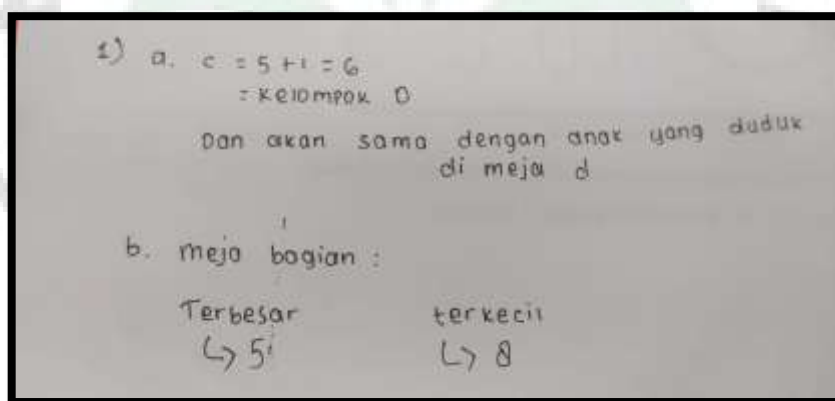 1) a. c = 5 + 1 = 6
= Kelompok D
Dan akan sama dengan anak yang duduk
di meja d
b. meja bagian :
Terbesar terkecil
↳ 5 ↳ 8